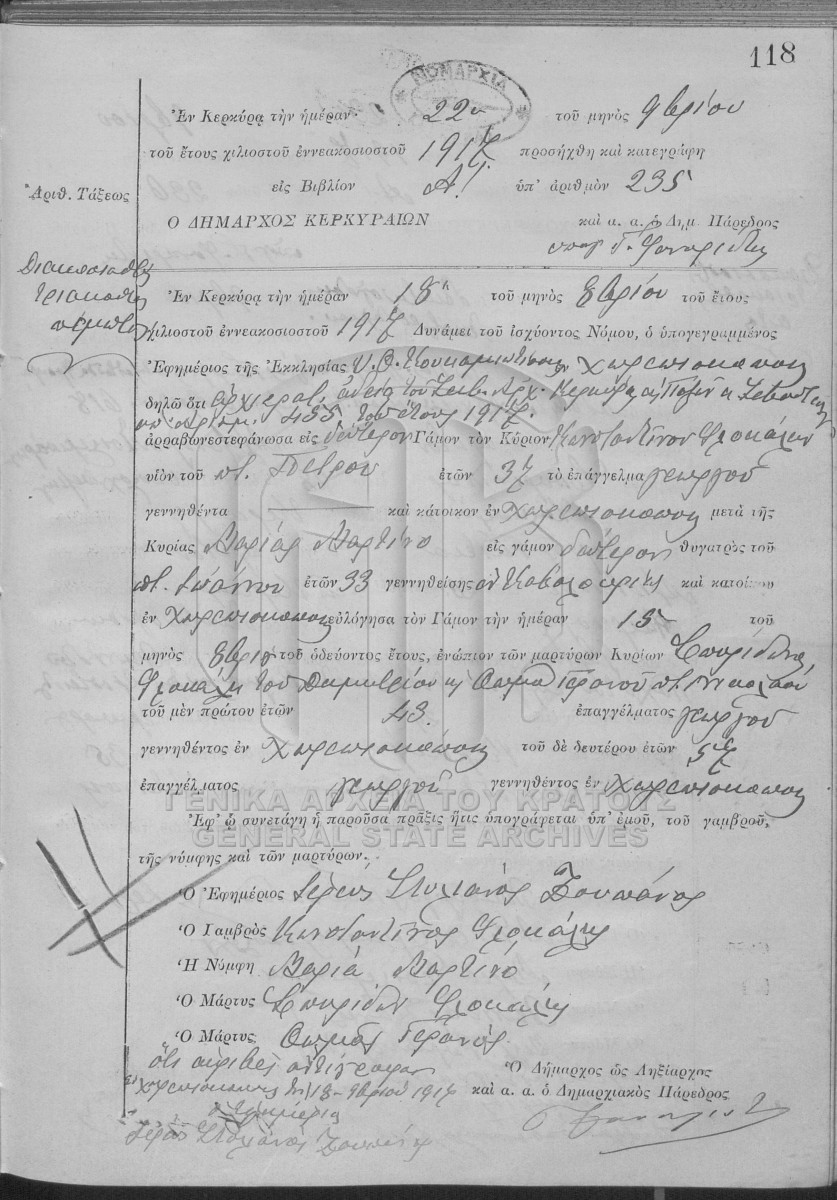 118
ΝΟΜΑΡΧΙΑ
Ἐν Κερκύρᾳ τὴν ἡμέραν 22α τοῦ μηνὸς 9βρίου
τοῦ ἔτους χιλιοστοῦ ἐννεακοσιοστοῦ 1917 προσήχθη καὶ κατεγράφη
Ἀριθ. Τάξεως
εἰς Βιβλίον Α! ὑπ' ἀριθμὸν 235
Ο ΔΗΜΑΡΧΟΣ ΚΕΡΚΥΡΑΙΩΝ καὶ α. α. ὁ Δημ. Πάρεδρος
Διακόσια
τριάκοντα
πέμπτη
Ἐν Κερκύρᾳ τὴν ἡμέραν 18η τοῦ μηνὸς 8βρίου τοῦ ἔτους
χιλιοστοῦ ἐννεακοσιοστοῦ 1917 Δυνάμει τοῦ ἰσχύοντος Νόμου, ὁ ὑπογεγραμμένος
Ἐφημέριος τῆς Ἐκκλησίας Υ. Θ. ἐν Χωρεπισκόποις
δηλῶ ὅτι ἀρχιερατ. ἀδείᾳ τοῦ Σεβ. Ἀρχ. Κερκύρας
ὑπ' ἀριθμ. 455 τοῦ ἔτους 1917.
ἀρραβωνεστεφάνωσα εἰς δεύτερον Γάμον τὸν Κύριον Κωνσταντῖνον Φλοκάλην
υἱὸν τοῦ ποτ. Πέτρου ἐτῶν 37 τὸ ἐπάγγελμα γεωργοῦ
γεννηθέντα καὶ κάτοικον ἐν Χωρεπισκόποις μετὰ τῆς
Κυρίας Μαρίας Μαρτίνο εἰς γάμον δεύτερον θυγατρὸς τοῦ
ποτ. Ἰωάννου ἐτῶν 33 γεννηθείσης ἐν καὶ κατοίκου
ἐν Χωρεπισκόποις εὐλόγησα τὸν Γάμον τὴν ἡμέραν 15 τοῦ
μηνὸς 8βρίου τοῦ ὁδεύοντος ἔτους, ἐνώπιον τῶν μαρτύρων Κυρίων Σπυρίδωνος
Φλοκάλη τοῦ Δημητρίου κ Θωμᾶ ποτ. Νικολάου
τοῦ μὲν πρώτου ἐτῶν 43. ἐπαγγέλματος γεωργοῦ
γεννηθέντος ἐν Χωρεπισκόποις τοῦ δὲ δευτέρου ἐτῶν 57
ἐπαγγέλματος γεωργοῦ γεννηθέντος ἐν Χωρεπισκόποις
ΓΕΝΙΚΑ ΑΡΧΕΙΑ ΤΟΥ ΚΡΑΤΟΥΣ
Ἐφ' ᾧ συνετάγη ἡ παροῦσα πρᾶξις ἥτις ὑπογράφεται ὑπ' ἐμοῦ, τοῦ γαμβροῦ,
GENERAL STATE ARCHIVES
τῆς νύμφης καὶ τῶν μαρτύρων.
Ὁ Ἐφημέριος Ἱερεὺς Στυλιανὸς
Ὁ Γαμβρὸς Κωνσταντῖνος Φλοκάλης
Ἡ Νύμφη Μαρία Μαρτίνο
Ὁ Μάρτυς Σπυρίδων Φλοκάλης
Ὁ Μάρτυς Θωμᾶς
Ὅτι ἀκριβὲς ἀντίγραφον
Ὁ Δήμαρχος ὡς Ληξίαρχος
1917
καὶ α. α. ὁ Δημαρχιακὸς Πάρεδρος
ὁ Ἐφημέριος
Ἱερεὺς Στυλιανὸς